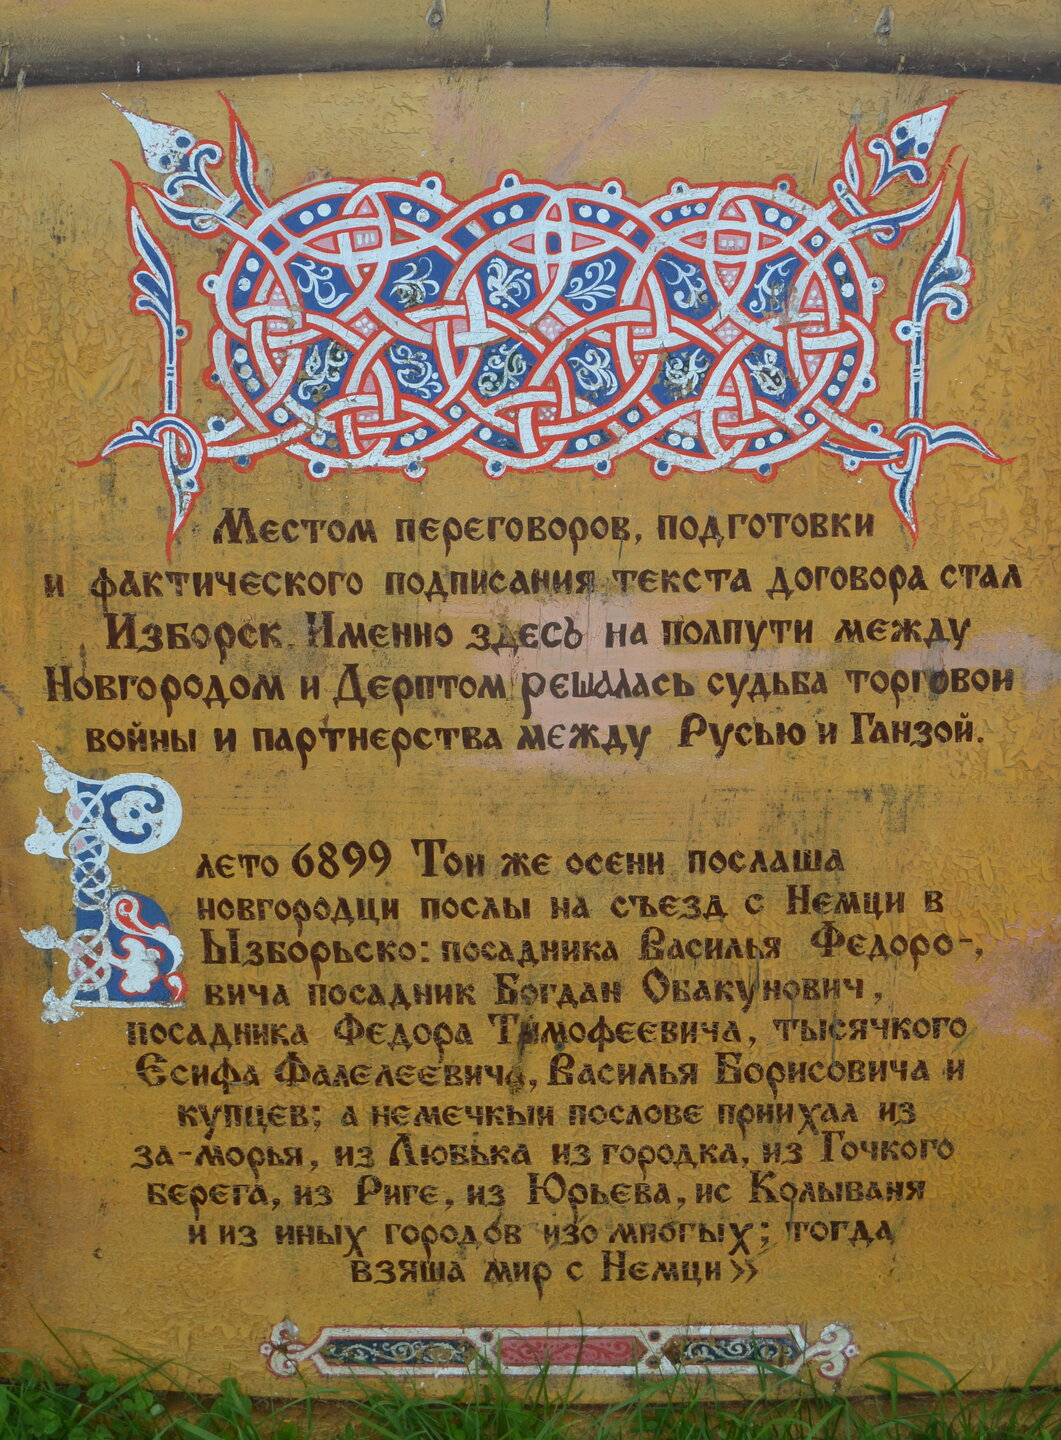 Местом переговоров, подготовки
и фактического подписания текста договора стал
Изборск. Именно здесь на полпути между
Новгородом и Дерптом решалась судьба торговои
войны и партнерства между Русью и Ганзой.
В лето 6899 Тои же осени послаша
новгородци послы на съезд с Немци в
Ызборьско: посадника Василья Федоро-,
вича посадник Богдан Обакунович,
посадника Федора Тимофеевича, тысячкого
Есифа Фалелеевича, Василья Борисовича и
купцев; а немечкыи послове приихал из
за-морья, из Любька из городка, из Гочкого
берега, из Риге, из Юрьева, ис Колываня
и из иных городов изо многых; тогда
взяша мир с Немци»